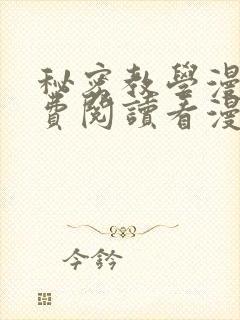 秘密教學漫
費閱讀看漫
今鈐